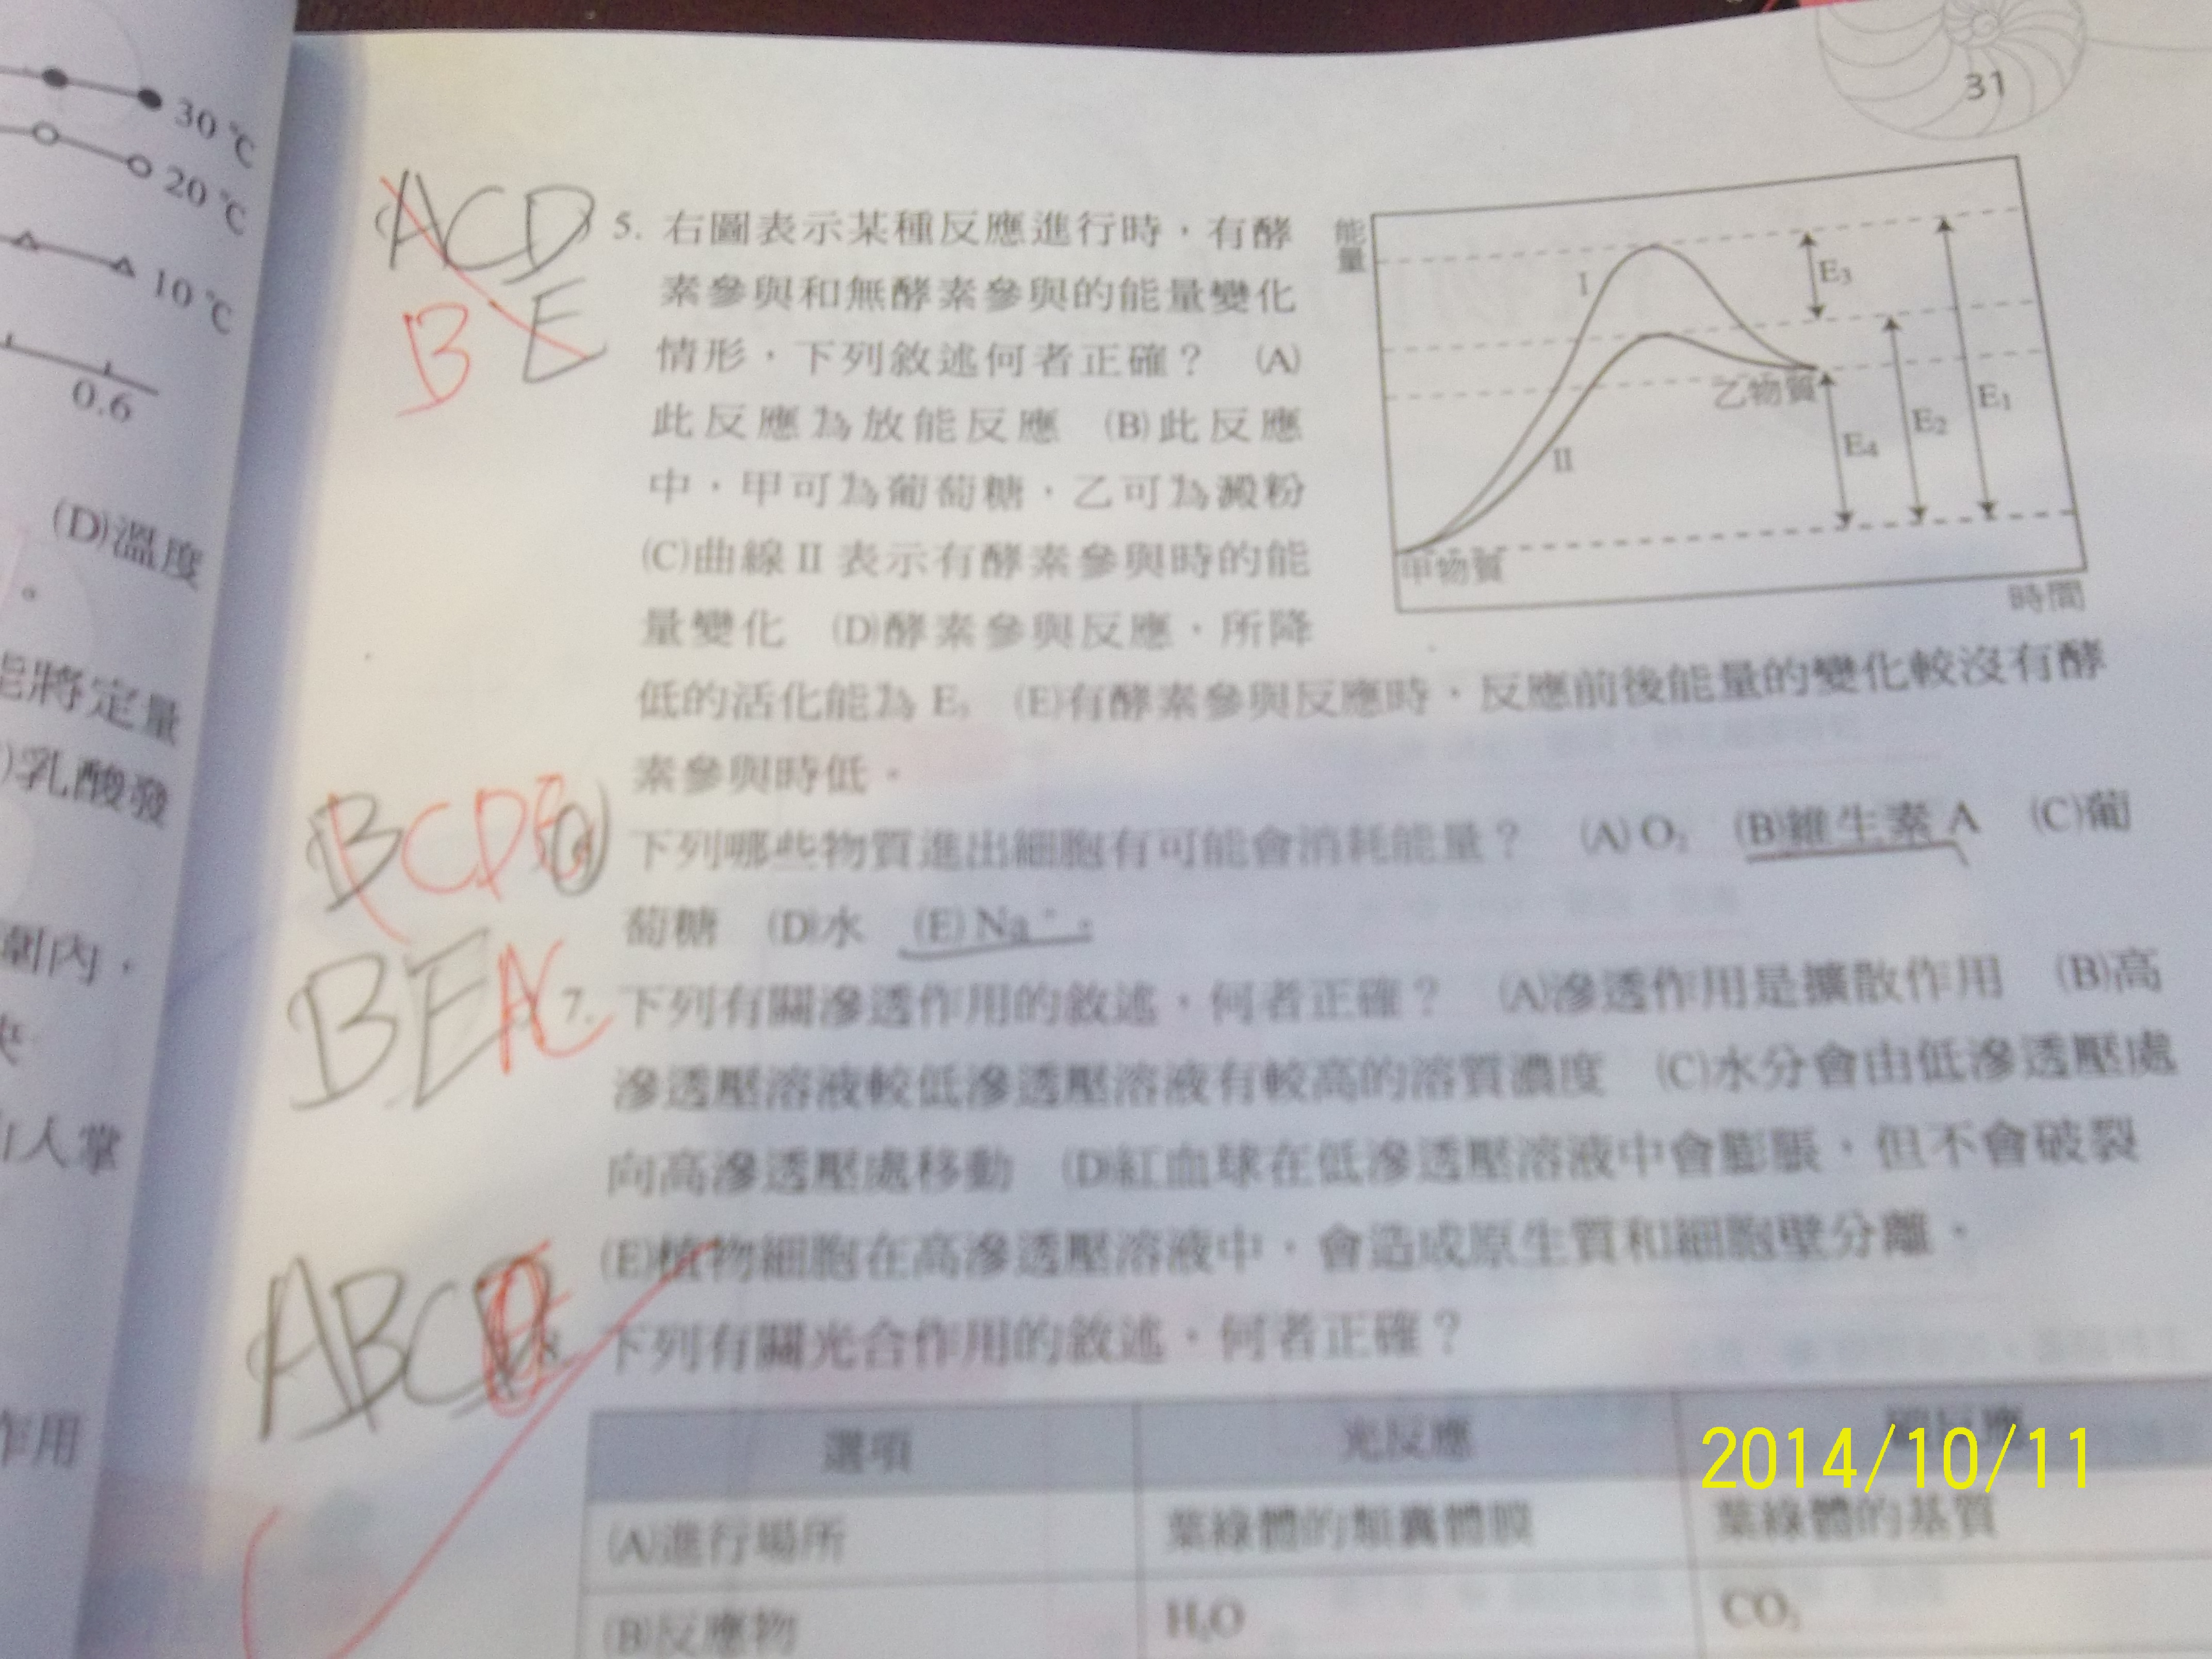 31
30 ℃
20 ℃
10 ℃
0.6
(D)溫度
。
能將定量
)乳酸發
圍內，
人掌
作用
ACD
B E
5. 右圖表示某種反應進行時，有酵
素參與和無酵素參與的能量變化
情形，下列敘述何者正確？ (A)
此反應為放能反應 (B)此反應
中，甲可為葡萄糖，乙可為澱粉
(C)曲線 II 表示有酵素參與時的能
量變化 (D)酵素參與反應，所降
低的活化能為 E₃ (E)有酵素參與反應時，反應前後能量的變化較沒有酵
素參與時低。
能量
I
II
E₃
乙物質
E₄
E₂
E₁
甲物質
時間
BCDE
下列哪些物質進出細胞有可能會消耗能量？ (A) O₂ (B)維生素 A (C)葡
萄糖 (D)水 (E) Na⁺。
BEAC
7. 下列有關滲透作用的敘述，何者正確？ (A)滲透作用是擴散作用 (B)高
滲透壓溶液較低滲透壓溶液有較高的溶質濃度 (C)水分會由低滲透壓處
向高滲透壓處移動 (D)紅血球在低滲透壓溶液中會膨脹，但不會破裂
(E)植物細胞在高滲透壓溶液中，會造成原生質和細胞壁分離。
ABC
8. 下列有關光合作用的敘述，何者正確？
選項 光反應 碳反應
(A)進行場所 葉綠體的類囊體膜 葉綠體的基質
(B)反應物 H₂O CO₂
2014/10/11